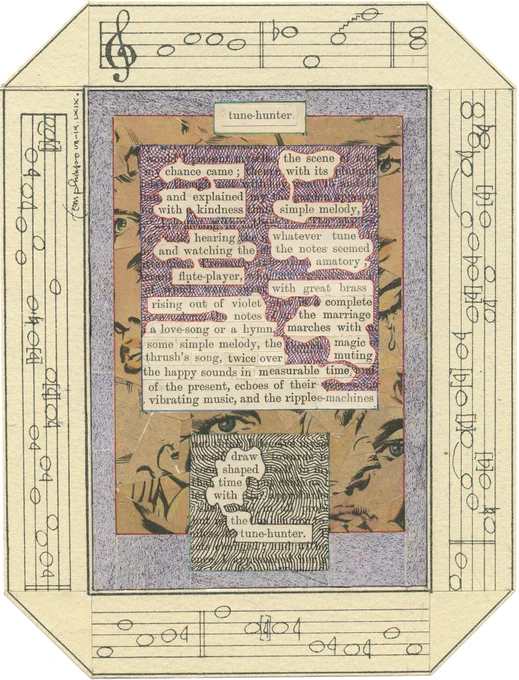 tune-hunter.
chance came ;
and explained
with kindness
hearing
and watching the
flute-player,
rising out of violet
notes
a love-song or a hymn,
some simple melody, the
thrush's song, twice over
the scene
with its
simple melody,
whatever tune
the notes seemed
amatory ;
with great brass
complete
the marriage
marches with
magic
muting
the happy sounds in measurable time,
of the present, echoes of their
vibrating music, and the ripplee-machines
draw
shaped
time
with
the
tune-hunter.